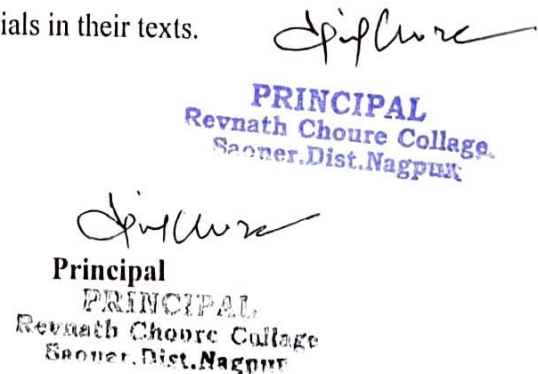 ials in their texts.
PRINCIPAL
Revnath Choure Collage.
Saoner.Dist.Nagpur
Principal
PRINCIPAL
Revnath Choure Collage
Saoner.Dist.Nagpur